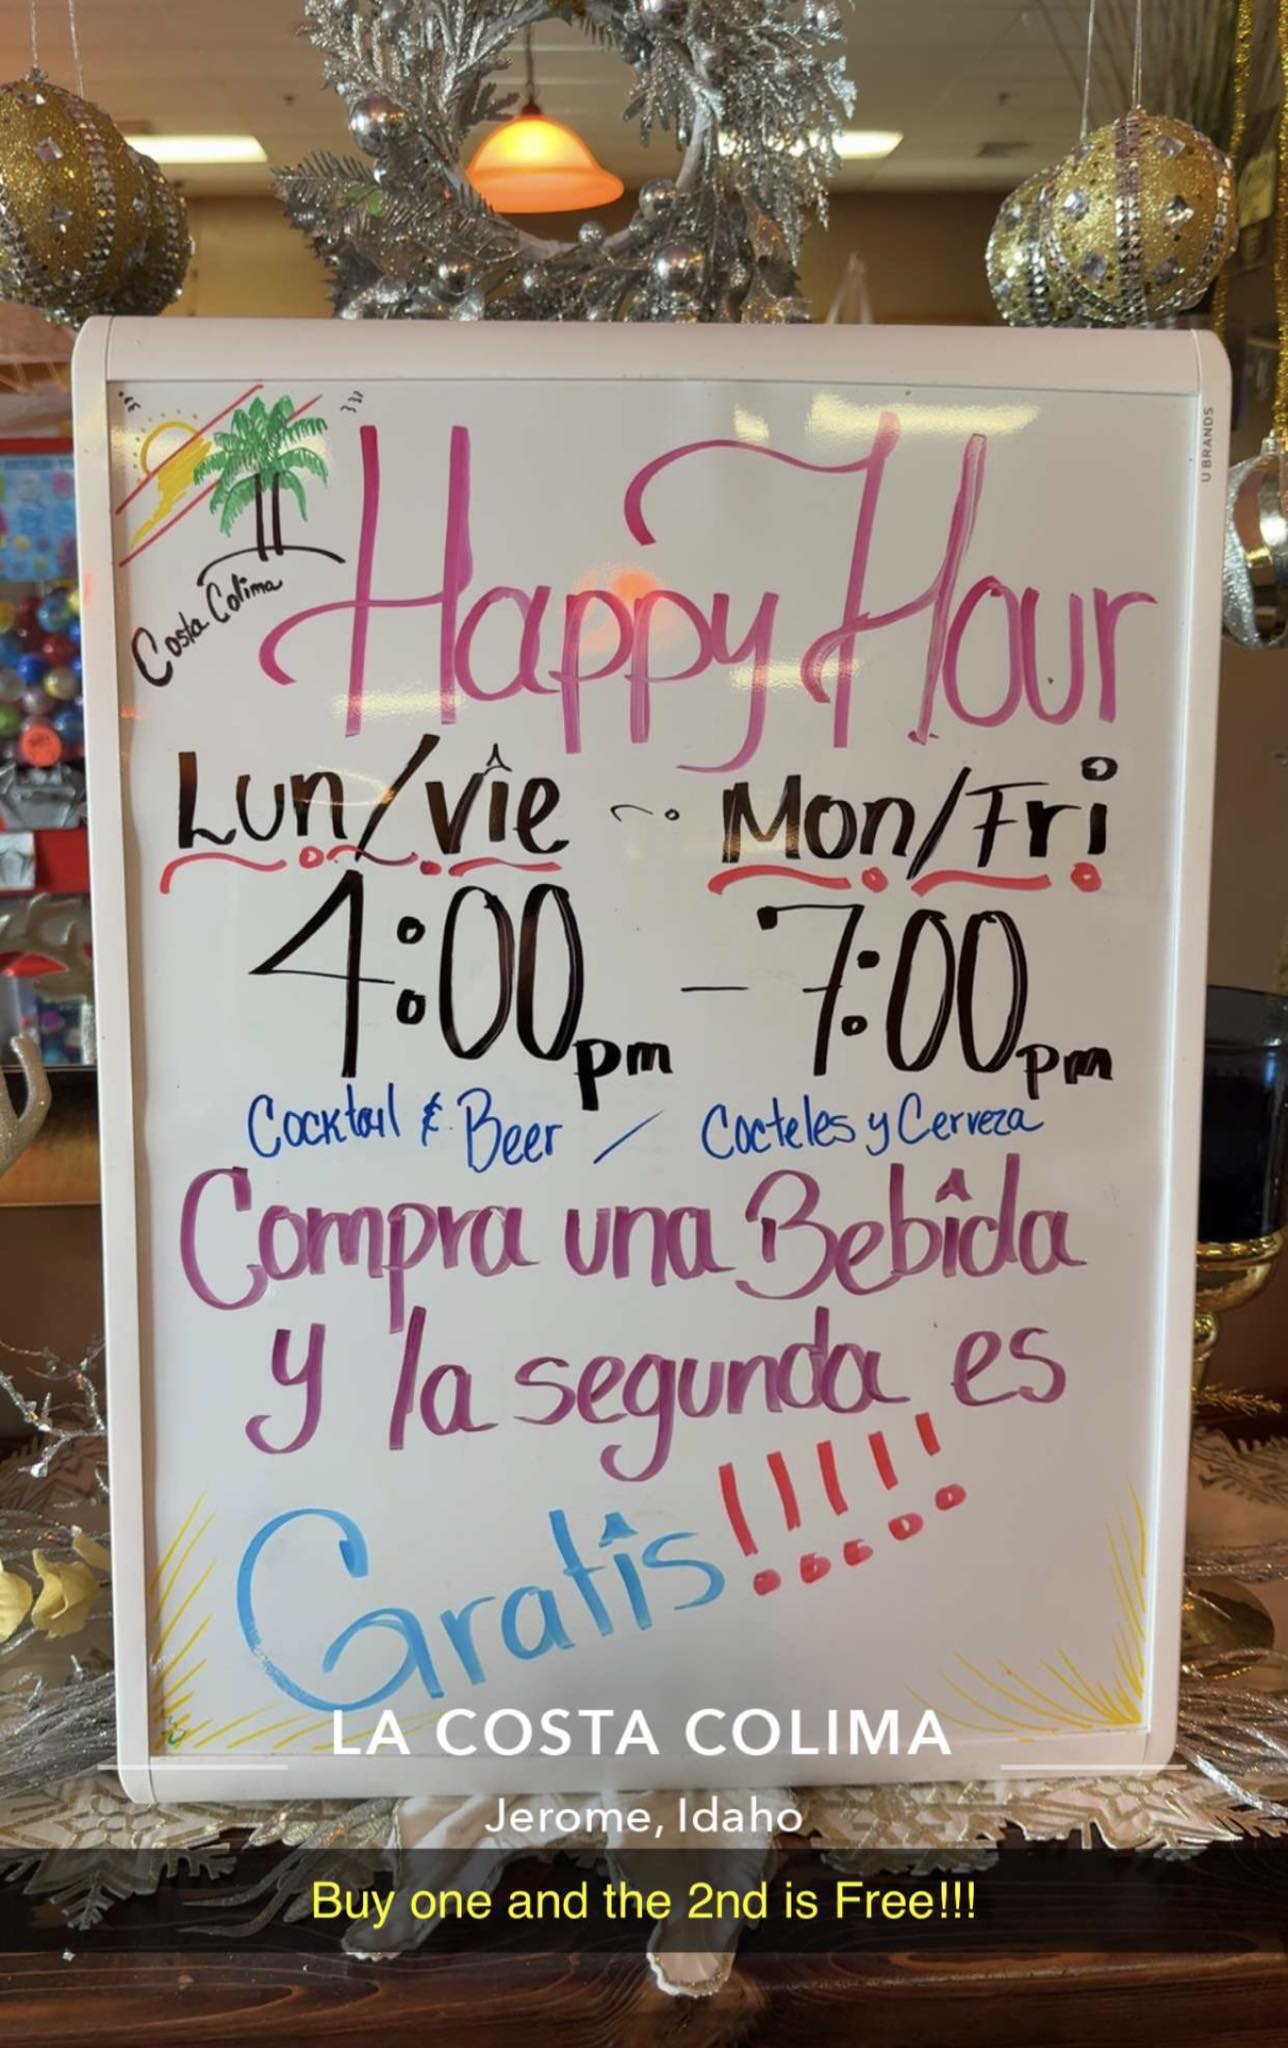 Costa Colima
Happy Hour
Lun/vie ~. Mon/Fri
4:00pm - 7:00pm
Cocktail & Beer / Cocteles y Cerveza
Compra una Bebida
y la segunda es
Gratis!!!!!
U BRANDS
LA COSTA COLIMA
Jerome, Idaho
Buy one and the 2nd is Free!!!